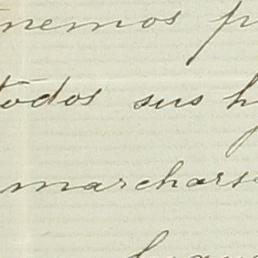 nemos p
todos sus h
marchars